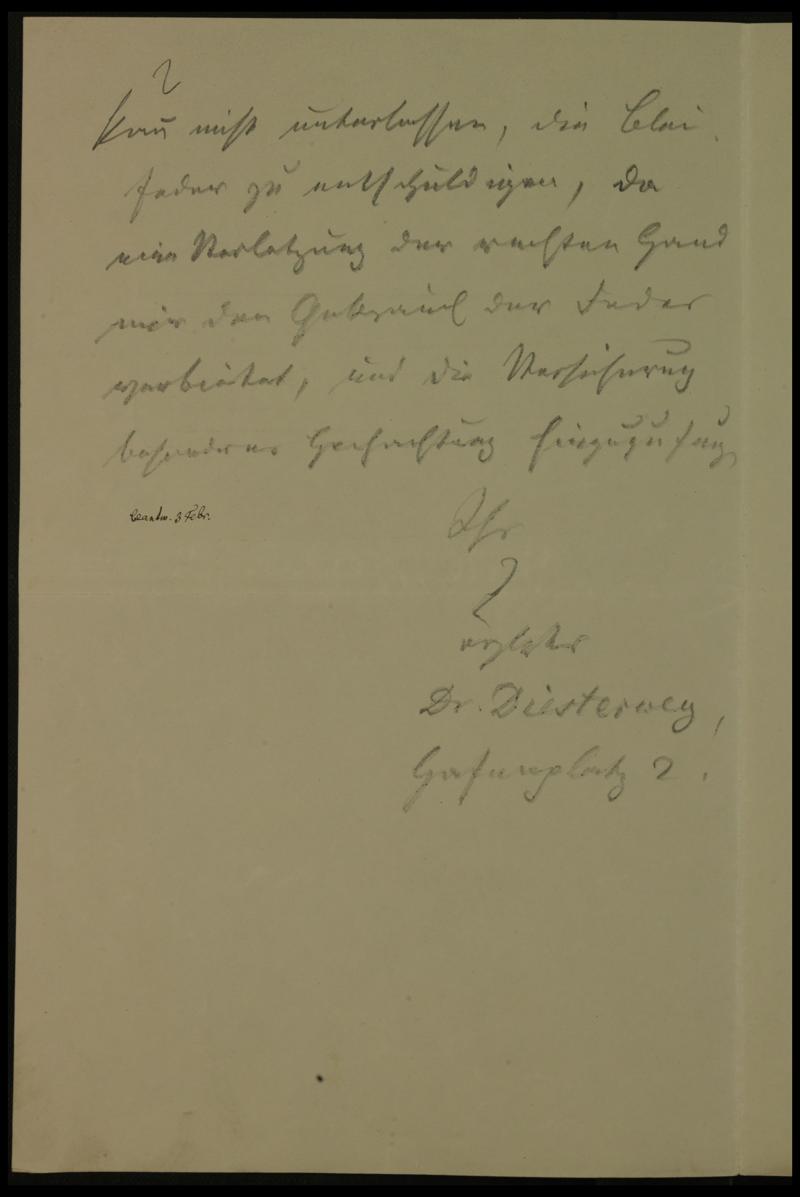 kann nicht unterlassen, die Blei
feder zu entschuldigen, da
eine Verletzung der rechten Hand
mir den Gebrauch der Feder
verbietet, und die Versicherung
besonderer Hochachtung hinzuzufügen
beantw. 3 Febr.
Ihr
Dr. Diesterweg,
Hafenplatz 2.